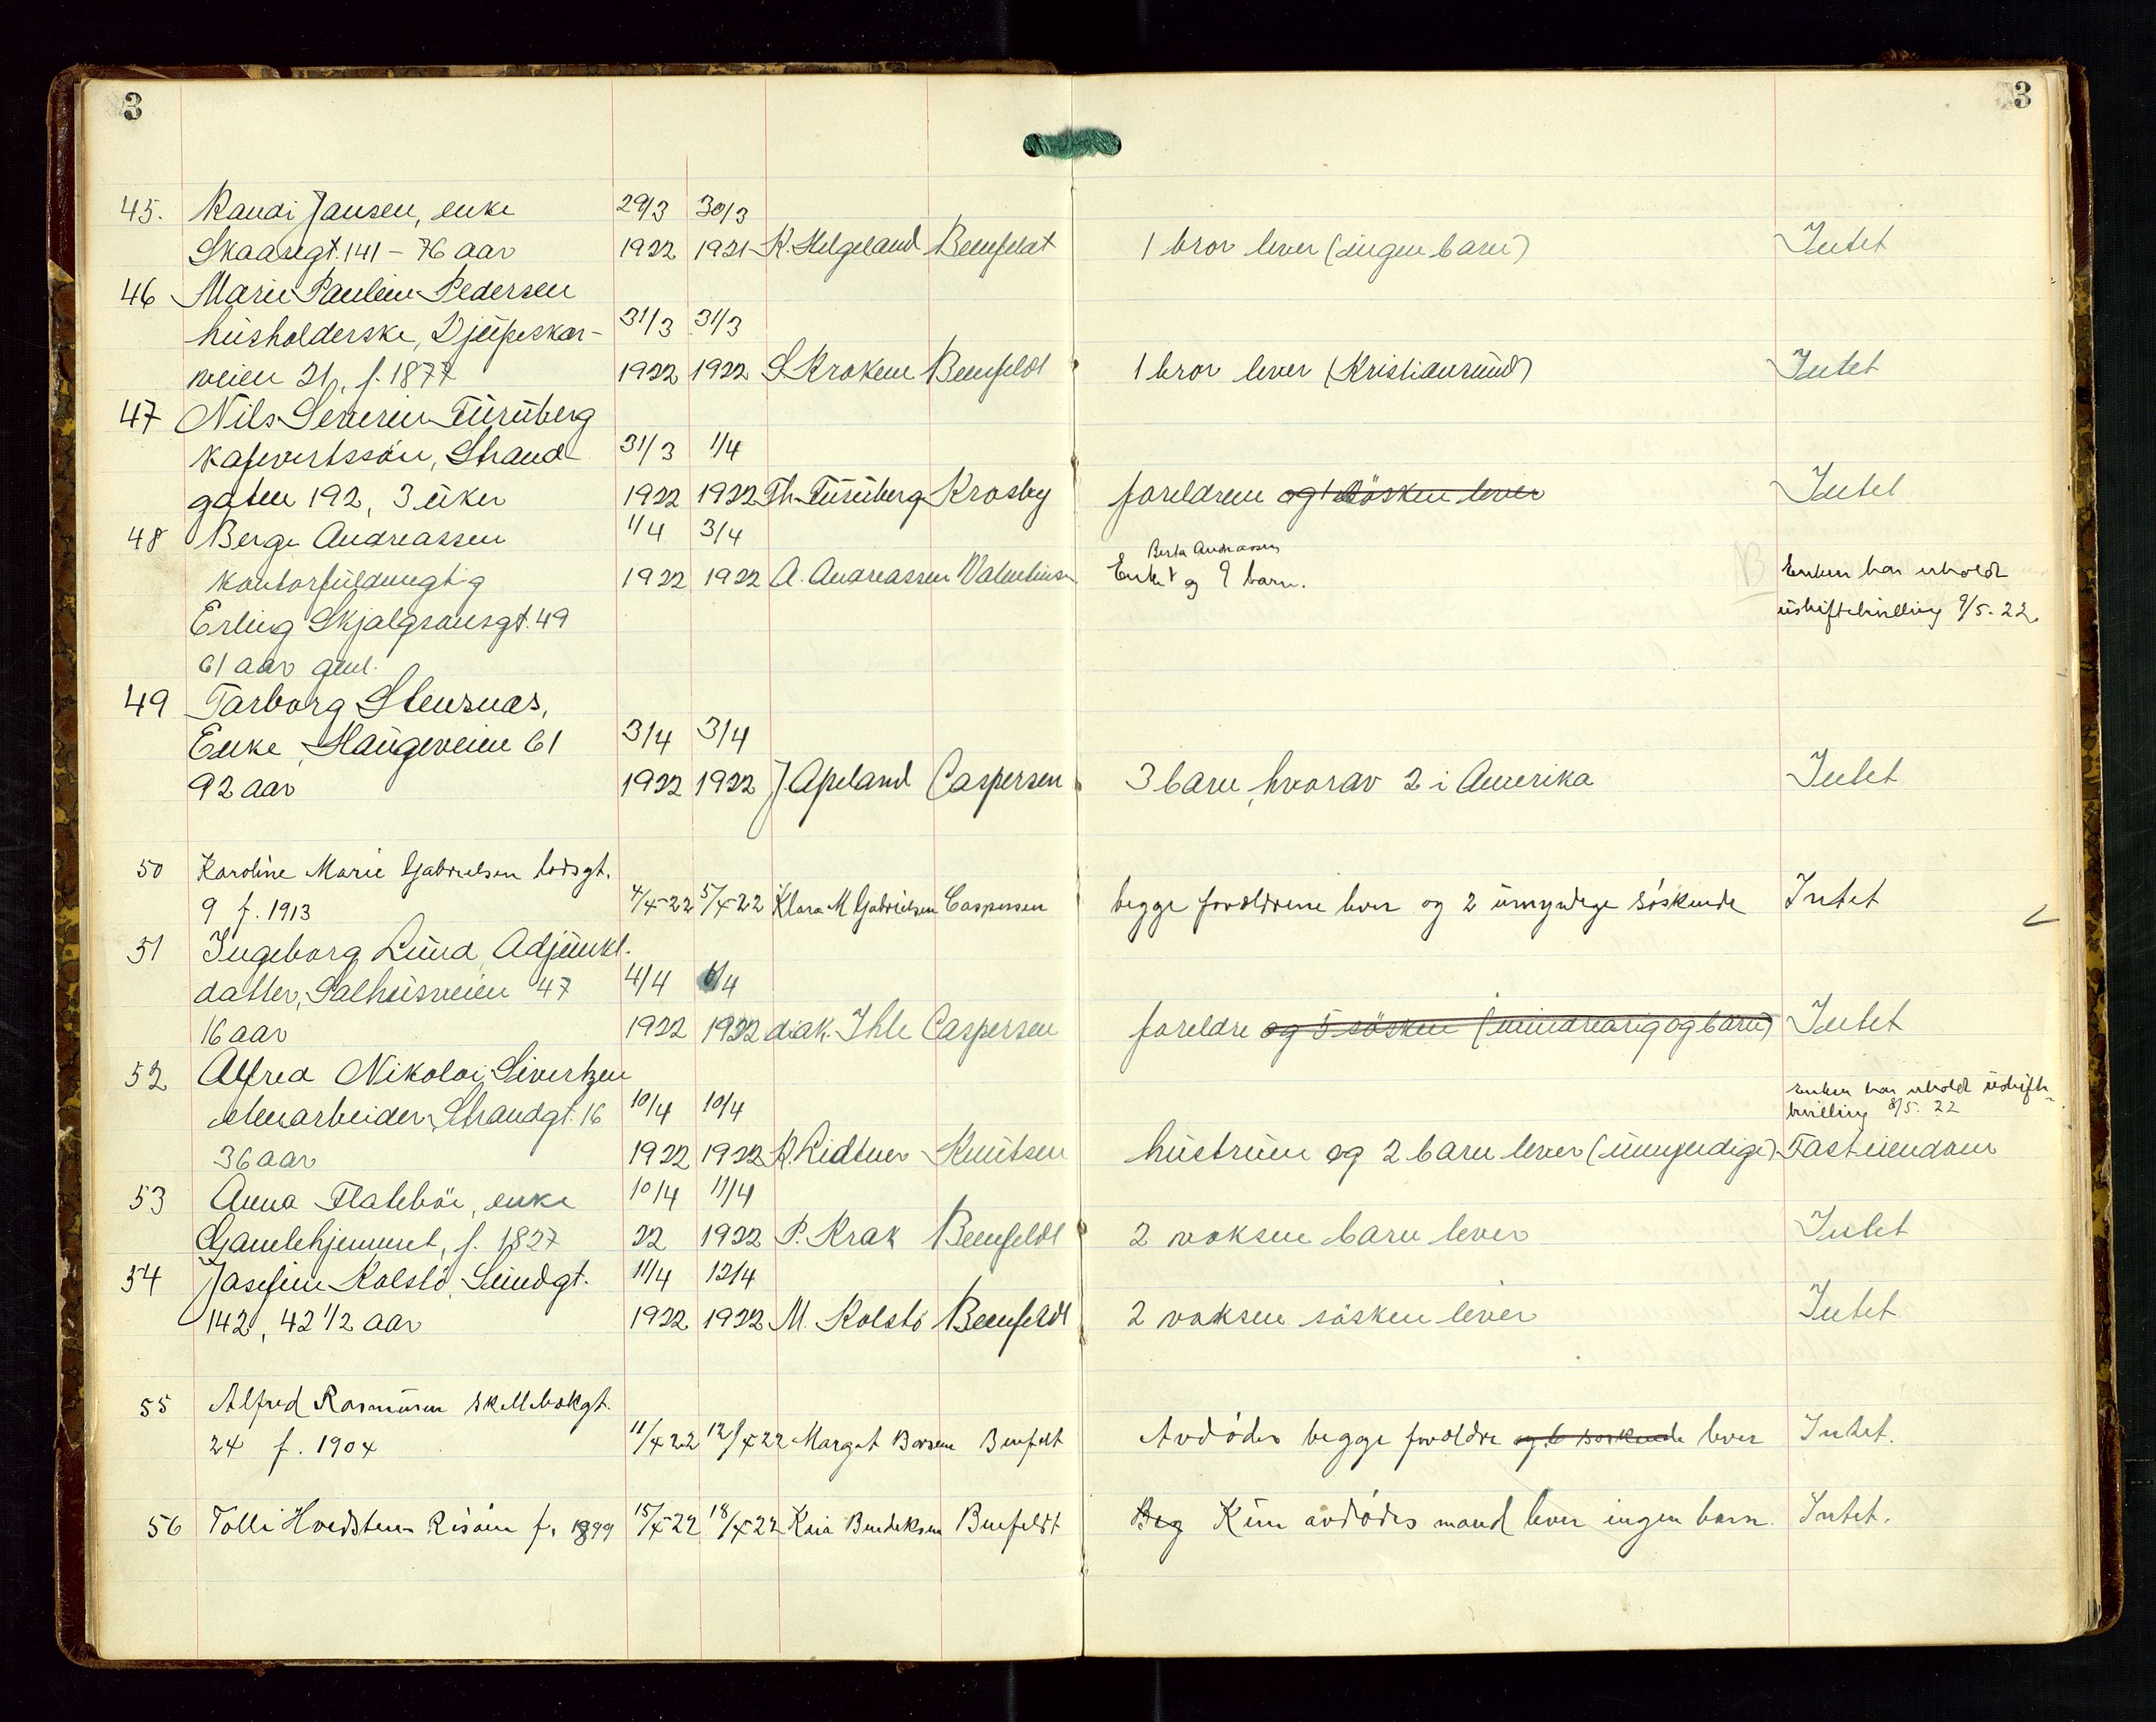 3
3
45. Randi Jansen, enke 29/3 30/3
Skaaregt. 141 - 76 aar 1922 1921 K. Helgeland Beenfeldt 1 bror lever (ingen barn) Intet
46 Marie Pauline Pedersen
husholderske, Djupeskar- 31/3 31/3
veien 21, f. 1877 1922 1922 S Kroken Beenfeldt 1 bror lever (Kristiansund) Intet
47 Nils Severin Furuberg
Kafevertssön, Strand- 31/3 1/4
gaten 192, 3 uker 1922 1922 Th. Furuberg Krosby foreldrene og 1 sösken lever Intet
48 Berge Andreassen 1/4 3/4
Berta Andreassen
kontorfuldmegtig 1922 1922 A. Andreassen Valentinsen Enke og 9 barn. Enken har erholdt
Erling Skjalgsonsgt. 49 uskiftebevilling 9/5-22.
61 aar gml.
49 Tarborg Stensnæs,
Enke, Haugeveien 61 3/4 3/4
92 aar 1922 1922 J. Apeland Caspersen 3 barn, hvorav 2 i Amerika Intet
50 Karoline Marie Gabrielsen lodsgt.
9 f. 1913 4/4-22 5/4-22 Klara M Gabrielsen Caspersen begge forældrene lever og 2 umyndige söskende Intet
51 Ingeborg Lund, Adjunkt-
datter, Salhusveien 47 4/4 6/4
16 aar 1922 1922 diak. Ihle Caspersen foreldre og 5 sösken (mindreårig og barn) Intet
52 Alfred Nikolai Sivertzen
Enken har erholdt uskifte-
stenarbeider, Strandgt. 16 10/4 10/4 bevilling 8/5. 22
36 aar 1922 1922 R. Ridtner Knutsen hustruen og 2 barn lever (umyndige) Fast eiendom
53 Anna Flatebö, enke 10/4 11/4
Gamlehjemmet, f. 1827 22 1922 P. Krak Beenfeldt 2 voksne barn lever Intet
54 Josefine Kolstö, Sundgt. 11/4 12/4
142, 42 1/2 aar 1922 1922 M. Kolstö Beenfeldt 2 voksne søsken lever Intet
55 Alfred Rasmussen Skillebækgt.
24 f. 1904 11/4 22 12/4 22 Margit Børsem Benfeldt Avdödes begge forældre og 6 søskende lever Intet.
56 Tolli Hvedsten Risöen f. 1899 15/4-22 18/4-22 Kaia Bendiksen Benfeldt Beg Kun avdödes mand lever ingen barn. Intet.